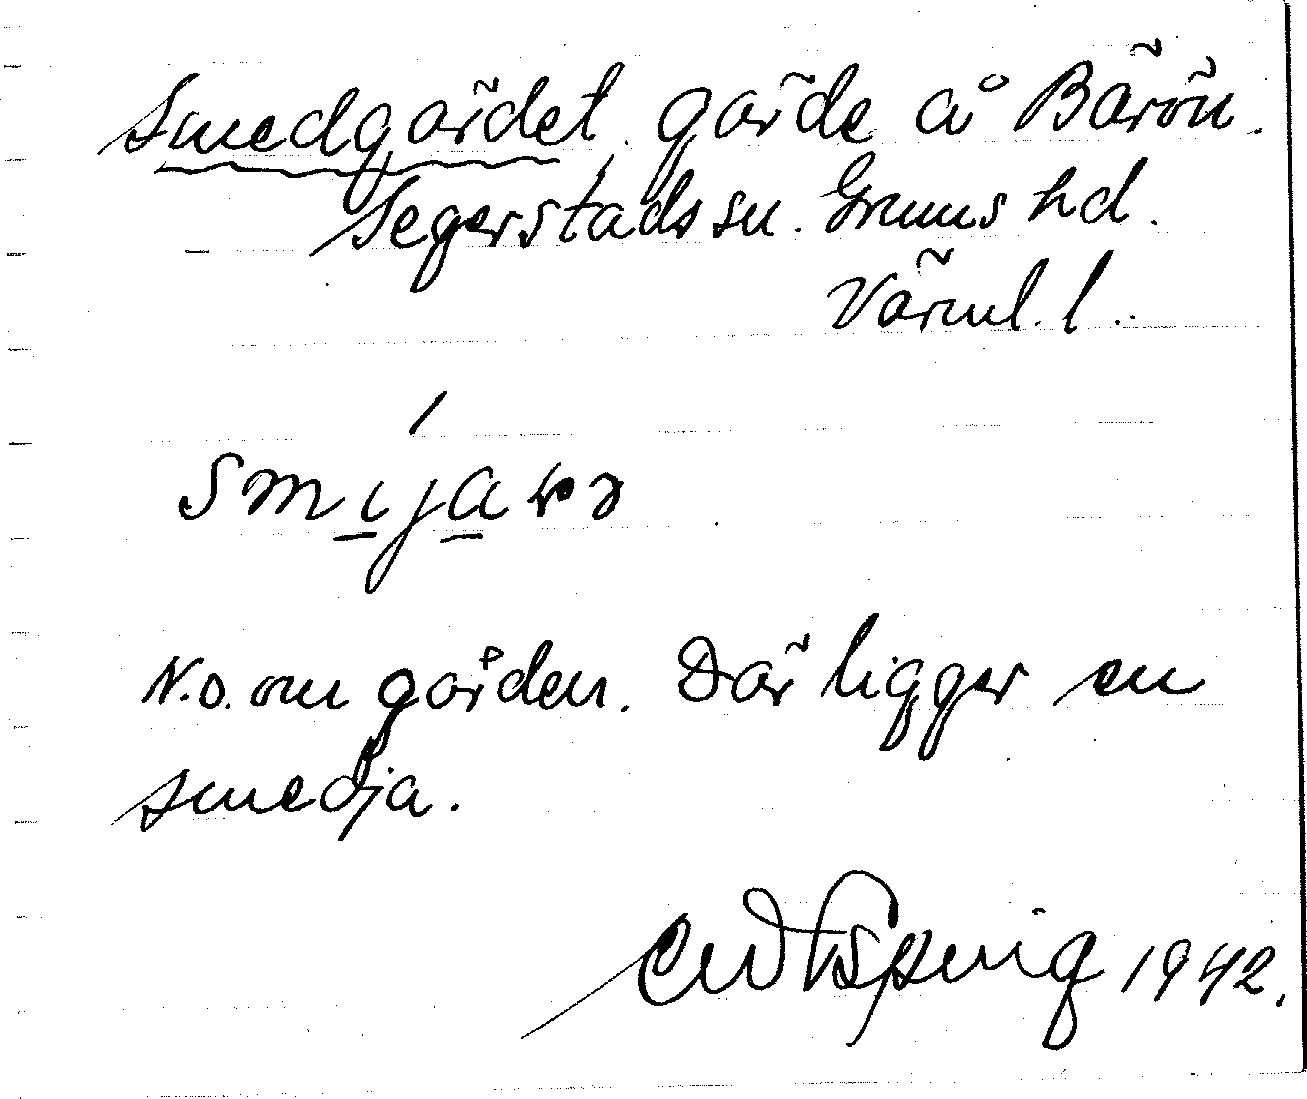 Smedgärdet, gärde å Bärön.
Segerstads sn. Grums hd.
Värml. l.
N.o. om gården. Där ligger en
smedja.
1942.